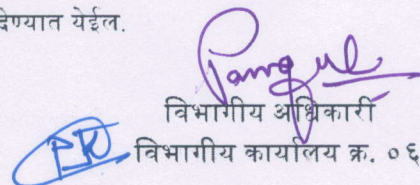 देण्यात येईल.
विभागीय अधिकारी
विभागीय कार्यालय क्र. ०६